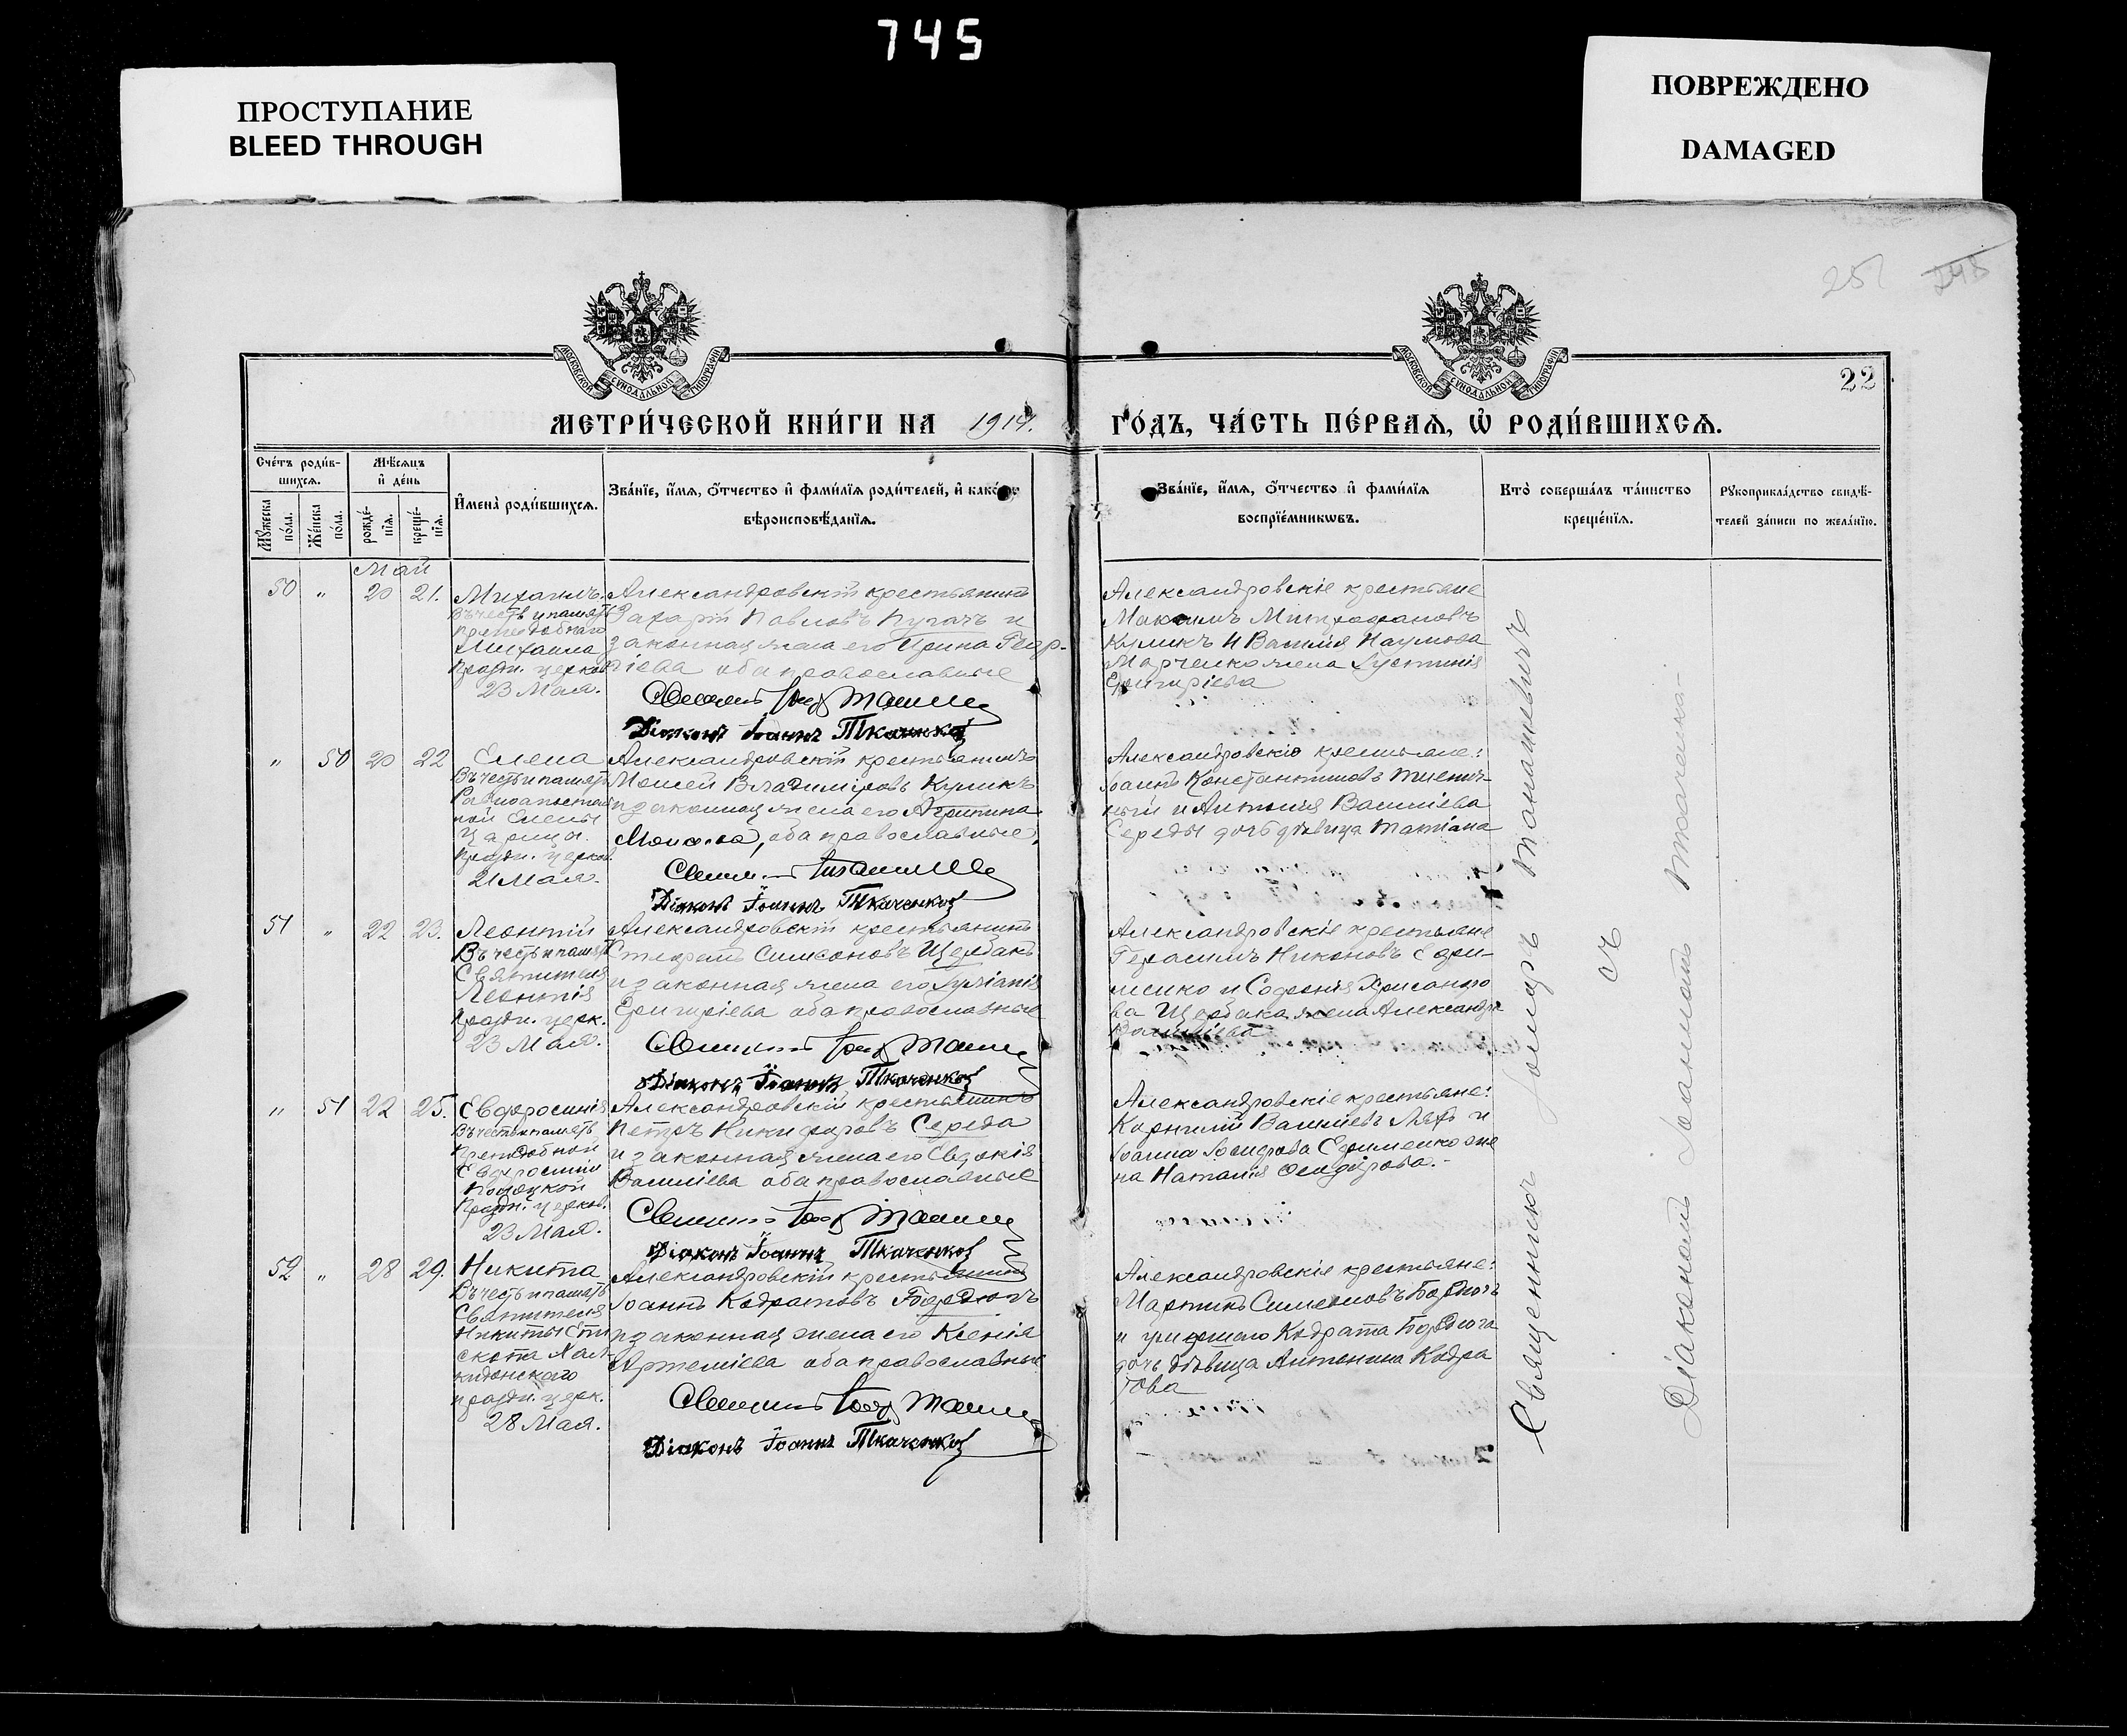 745
ПРОСТУПАНИЕ
BLEED THROUGH
ПОВРЕЖДЕНО
DAMAGED
МОСКОВСКОЙ СѴНОДАЛЬНОЙ ТИПОГРАФІИ
МОСКОВСКОЙ СѴНОДАЛЬНОЙ ТИПОГРАФІИ
22
МЕТРИ́ЧЕСКОЙ КНИ́ГИ НА 1914.
ГО́ДЪ, ЧА́СТЬ ПЕ́РВАѦ, Ѡ РОДИ́ВШИХСѦ.
Сче́тъ роди́в-
шихсѧ.
Мꙋ́жеска
по́ла.
Же́нска
по́ла.
Мѣ́сѧцъ
и҆ де́нь
рожде́-
нїѧ.
креще́-
нїѧ.
И҆мена̀ роди́вшихсѧ.
Зва́нїе, и҆́мѧ, о҆́тчество и҆ фами́лїѧ роди́телей, и҆ како́гѡ
вѣроисповѣ́данїѧ.
Зва́нїе, и҆́мѧ, о҆́тчество и҆ фами́лїѧ
воспрїе́мникѡвъ.
Кто̀ соверша́лъ та́инство
креще́нїѧ.
Рꙋкоприкла́дство свидѣ́-
телей за́писи по жела́нїю.
Май
50 " 20 21.
Михаилъ.
Въ честь и память
Преподобнаго
Михаила
праздн. церков.
23 Мая.
Александровскій крестьянинъ
Захарій Павловъ Пугачъ и
законная жена его Ирина Геор-
гіева оба православные
Діаконъ Іоаннъ Ткаченко
Александровскіе крестьяне
Максимъ Митрофановъ
Куликъ и Василія Наумова
Марченко жена Іустинія
Григріева
" 50 20 22
Елена
Въ честь и память
Равноапостоль
ной Елены
Царицы.
праздн. церков.
21 Мая.
Александровскій крестьянинъ
Моисей Владиміровъ Куликъ
и законная жена его Агрипина
оба православные,
Діаконъ Іоаннъ Ткаченко
Александровскіе крестьяне:
Іоаннъ Константиновъ
и Антонія Василіева
Середы дочь дѣвица Татіана
51 " 22 23.
Леонтій
Въ честь и память
Святителя
Леонтія
праздн. церк.
23 Мая.
Александровскій крестьянинъ
Стефанъ Симеоновъ Щербакъ
и законная жена его Іуліанія
Григріева оба православные
Діаконъ Іоаннъ Ткаченко
Александровскіе крестьяне
Герасимъ Никоновъ Ефи-
менко и Софронія Хрисанфо
ва Щербака жена Александра
Василіева
" 51 22 25.
Евфросинія
Въ честь и память
Преподобной
Евфросиніи
Полоцкой
Праздн. церков.
23 Мая.
Александровскій крестьянинъ
Петръ Никифоровъ Середа
и законная жена его Евдокія
Василіева оба православные
Діаконъ Іоаннъ Ткаченко
Александровскіе крестьяне:
Корнилій Василіевъ Ляхъ и
Іоанна Іосифова Ефименко же
на Наталія Феодорова.
52 " 28 29.
Никита
Въ честь и память
Святителя
Никиты Епи
скопа Хал-
кидонскаго
праздн. церк.
28 Мая.
Александровскій крестьянинъ
Іоаннъ Кодратовъ Бордюгъ
и законная жена его Ксенія
Артеміева оба православные
Діаконъ Іоаннъ Ткаченко
Александровскіе крестьяне:
Мартинъ Симеоновъ Бордюгъ
и умершаго Кодрата Бордюга
дочь дѣвица Антонина Кодра
това
Священникъ
съ
Діакономъ Іоанномъ Ткаченко